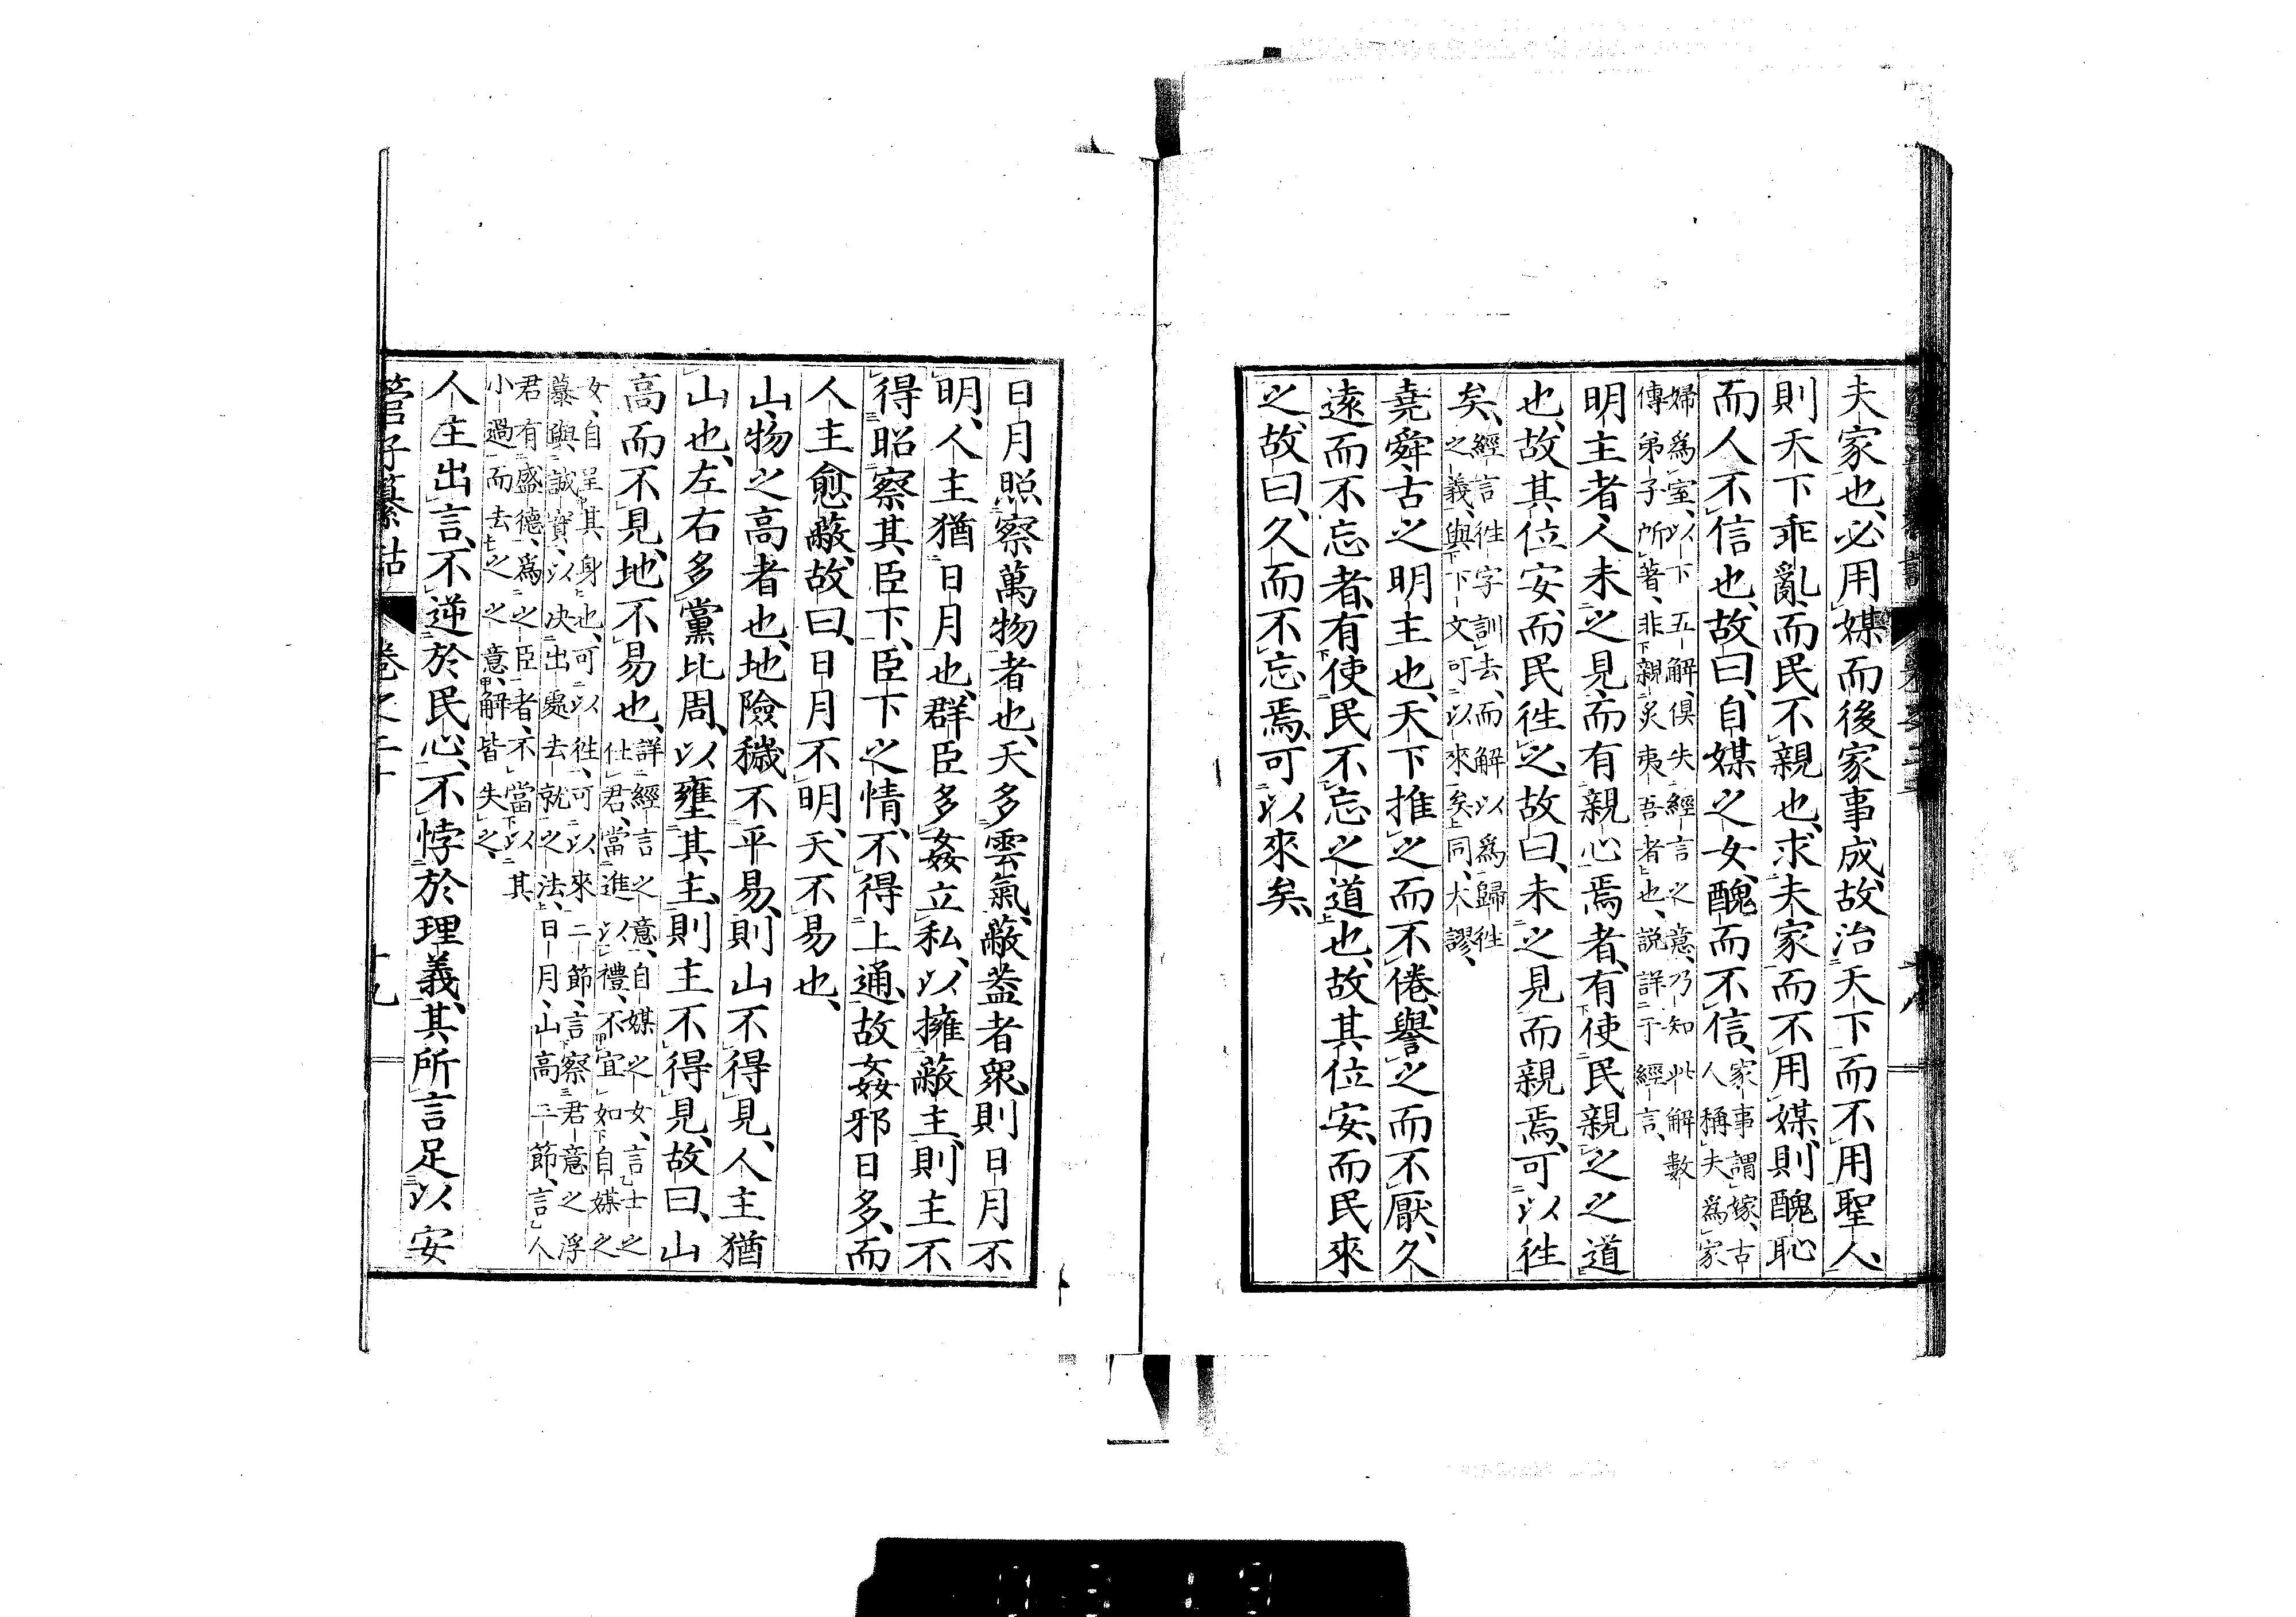 夫家也、必用媒而後家事成、故治天下而不用聖人、
則天下乖亂、而民不親也、求夫家而不用媒、則醜恥
而人不信也、故曰、自媒之女、醜而不信、家事謂嫁、古人稱夫爲家
婦爲室、以下五解、俱失經言之意、乃知此解數
傳弟子所著、非親炙夷吾者也、説詳于經言、
明主者、人未之見、而有親心焉者、有使民親之之道
也、故其位安、而民徃之、故曰、未之見而親焉、可以徃
矣、經言徃字訓去、而解以爲歸徃
之義、與下文可以來矣同、大謬、
堯舜、古之明主也、天下推之而不倦、譽之而不厭、久
遠而不忘者、有使民不忘之道也、故其位安、而民來
之、故曰、久而不忘焉、可以來矣、
日月照察萬物者也、天多雲氣、蔽葢者衆、則日月不
明、人主猶日月也、群臣多姦立私、以擁蔽主、則主不
得昭察其臣下、臣下之情、不得上通、故姦邪日多、而
人主愈蔽、故曰、日月不明、天不易也、
山、物之高者也、地險穢不平易、則山不得見、人主猶
山也、左右多黨比周、以壅其主、則主不得見、故曰、山
高而不見、地不易也、詳經言之意、自媒之女、言士之
仕君、當進以禮、不宜如自媒之
女、自呈其身也、可以徃、可以來二節、言察君意之浮
慕與誠實、以决出處去就之法、日月、山高二節、言人
君有盛德、爲之臣者、不當以其
小過而去之之意、解皆失之、
人主出言、不逆於民心、不悖於理義、其所言足以安
管子纂詁 卷之二十 十九